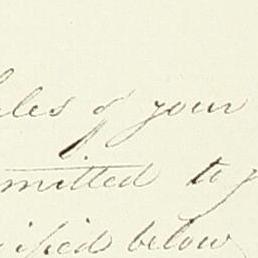 les of your
mitted to
ified below